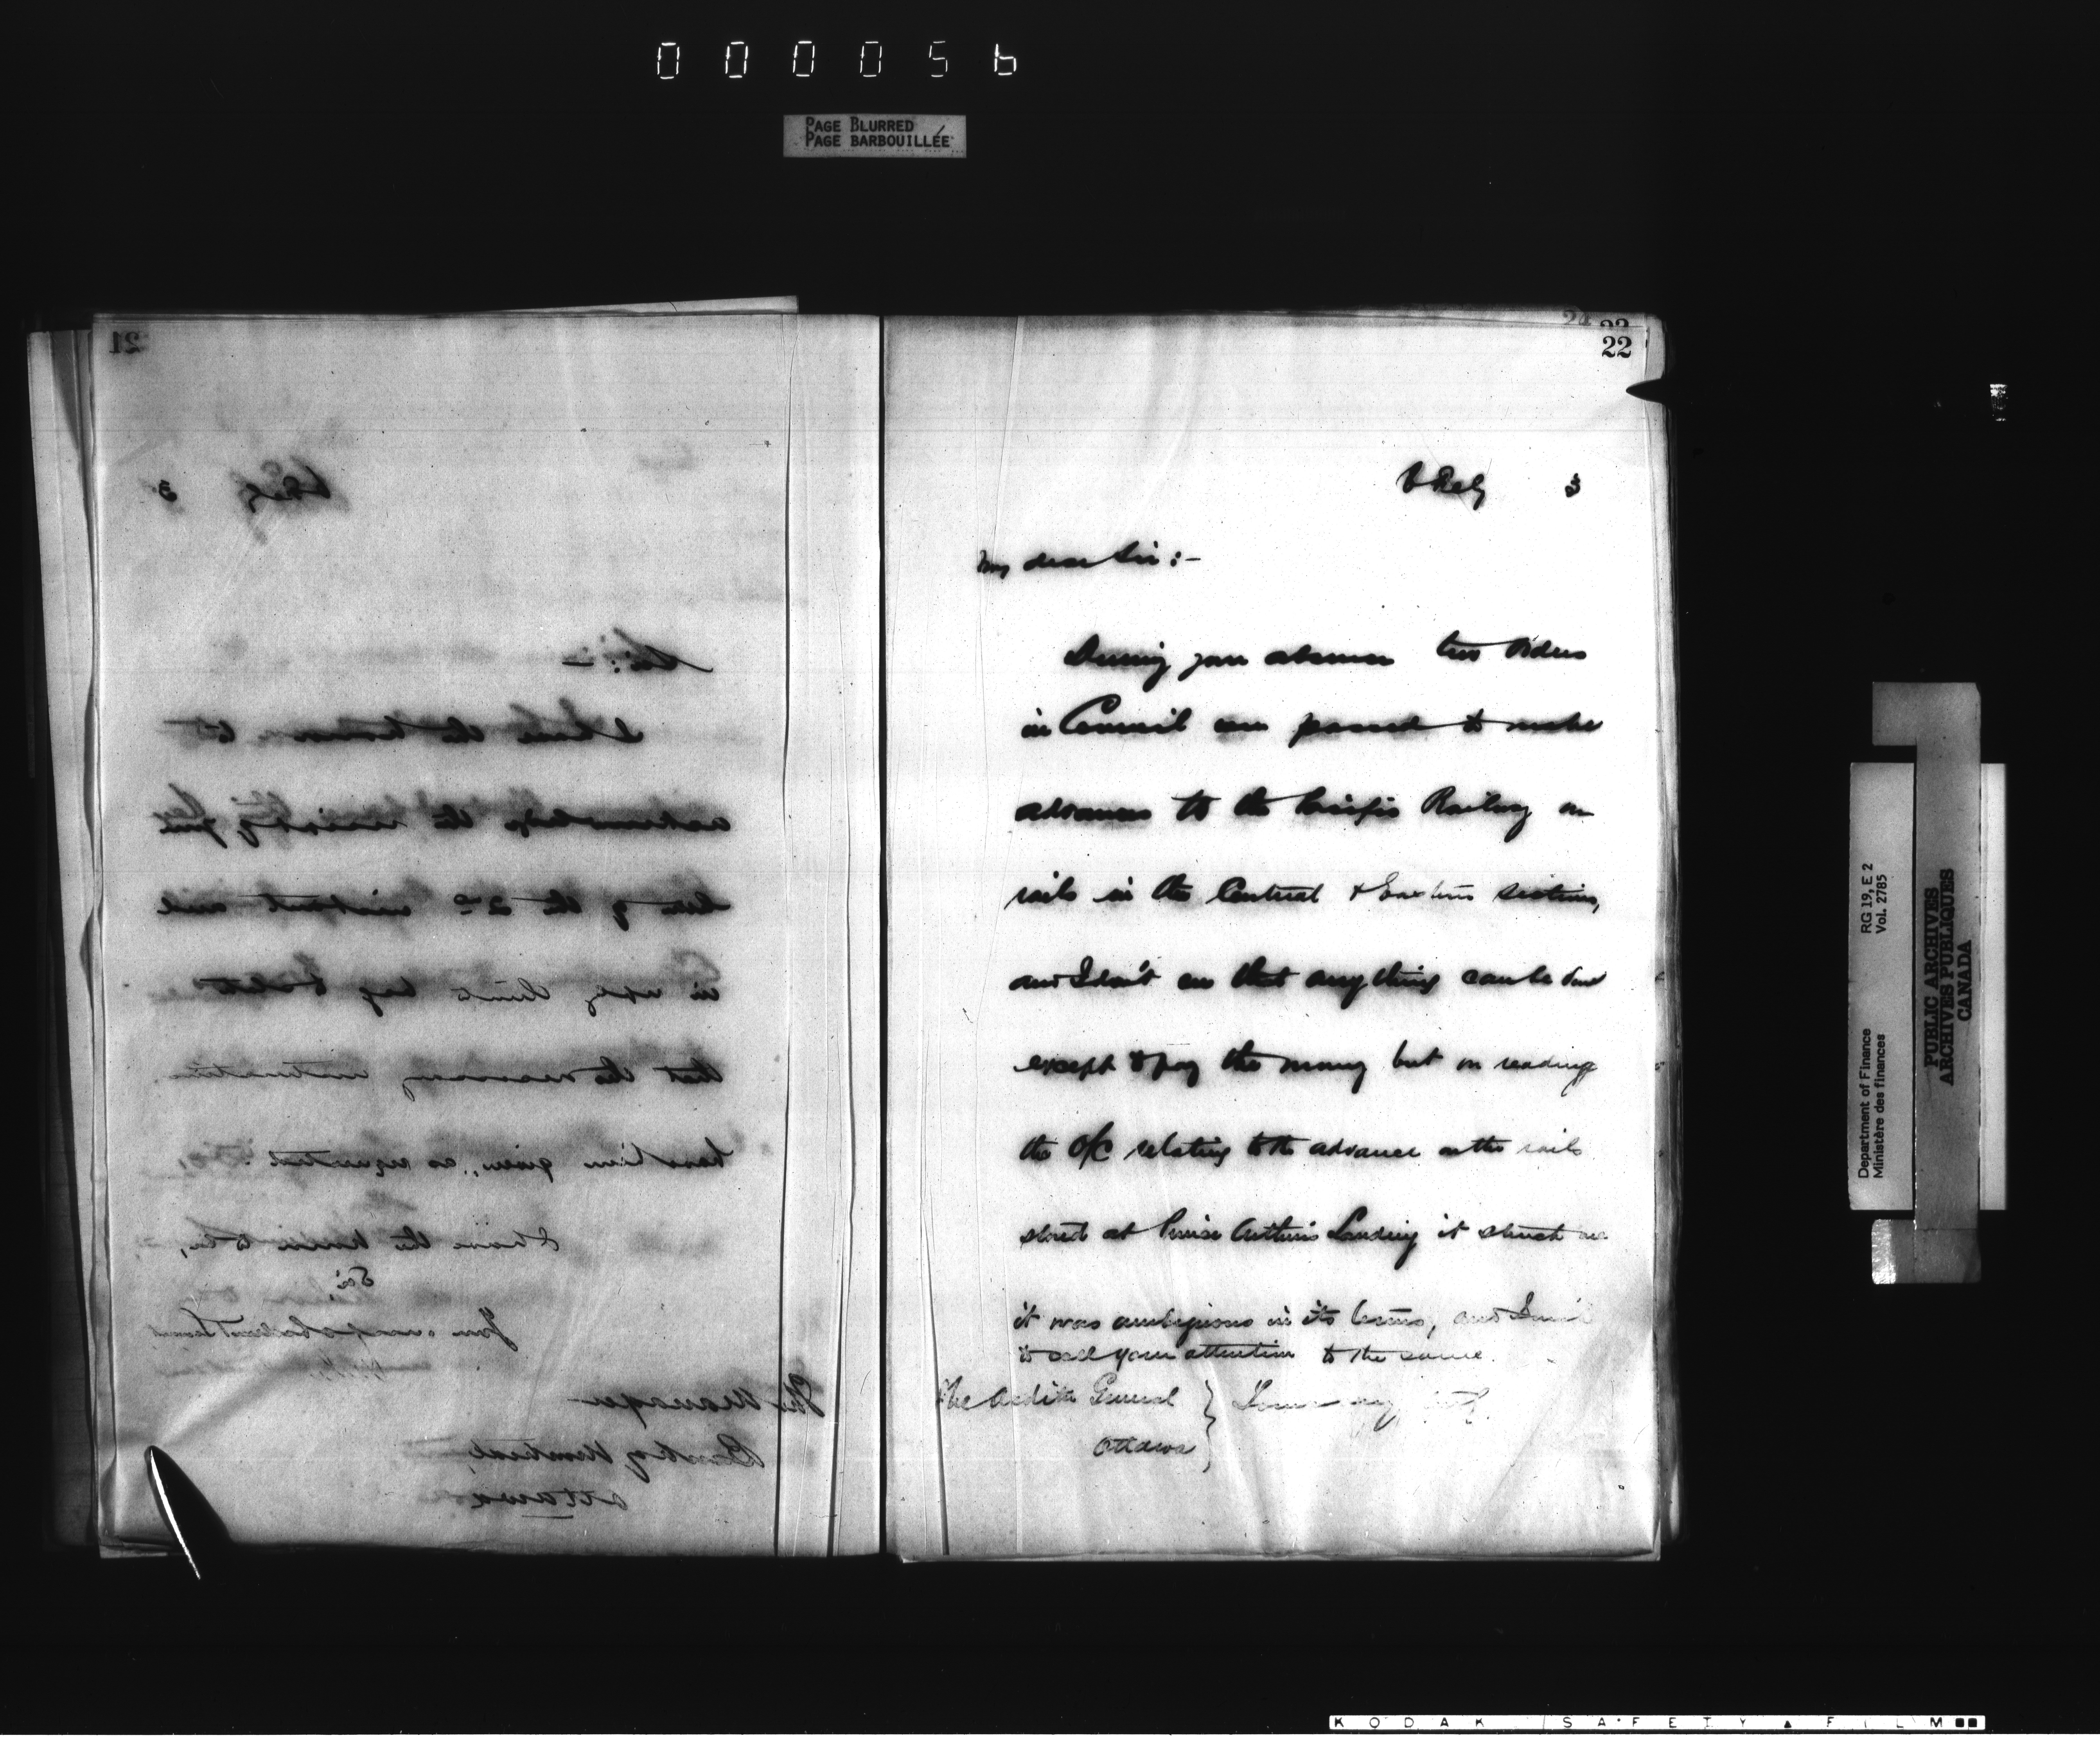 000056
PAGE BLURRED
PAGE BARBOUILLÉE
21
3
Sir:—
I have the honor to
acknowledge the receipt of
of the 2nd instant and
in reply thereto beg to state
that the necessary instructions
have been given, as requested.
I have the honor to be,
Sir
Your obedient Servant
The Manager
Bank of Montreal,
Ottawa
24 23
22
3
My dear Sir:—
During your absence two Orders
in Council were passed to make
advances to the Pacific Railway on
rails in the Central & Eastern sections,
and I don't see that anything can be done
except to pay the money but on reading
the O/C relating to the advance on the rails
stored at Prince Arthur's Landing it struck me
it was ambiguous in its terms, and I
to call your attention to the same.
The Auditor General
Ottawa
Yours
Department of Finance
Ministère des finances
RG 19, E 2
Vol. 2785
PUBLIC ARCHIVES
ARCHIVES PUBLIQUES
CANADA
KODAK SAFETY FILM